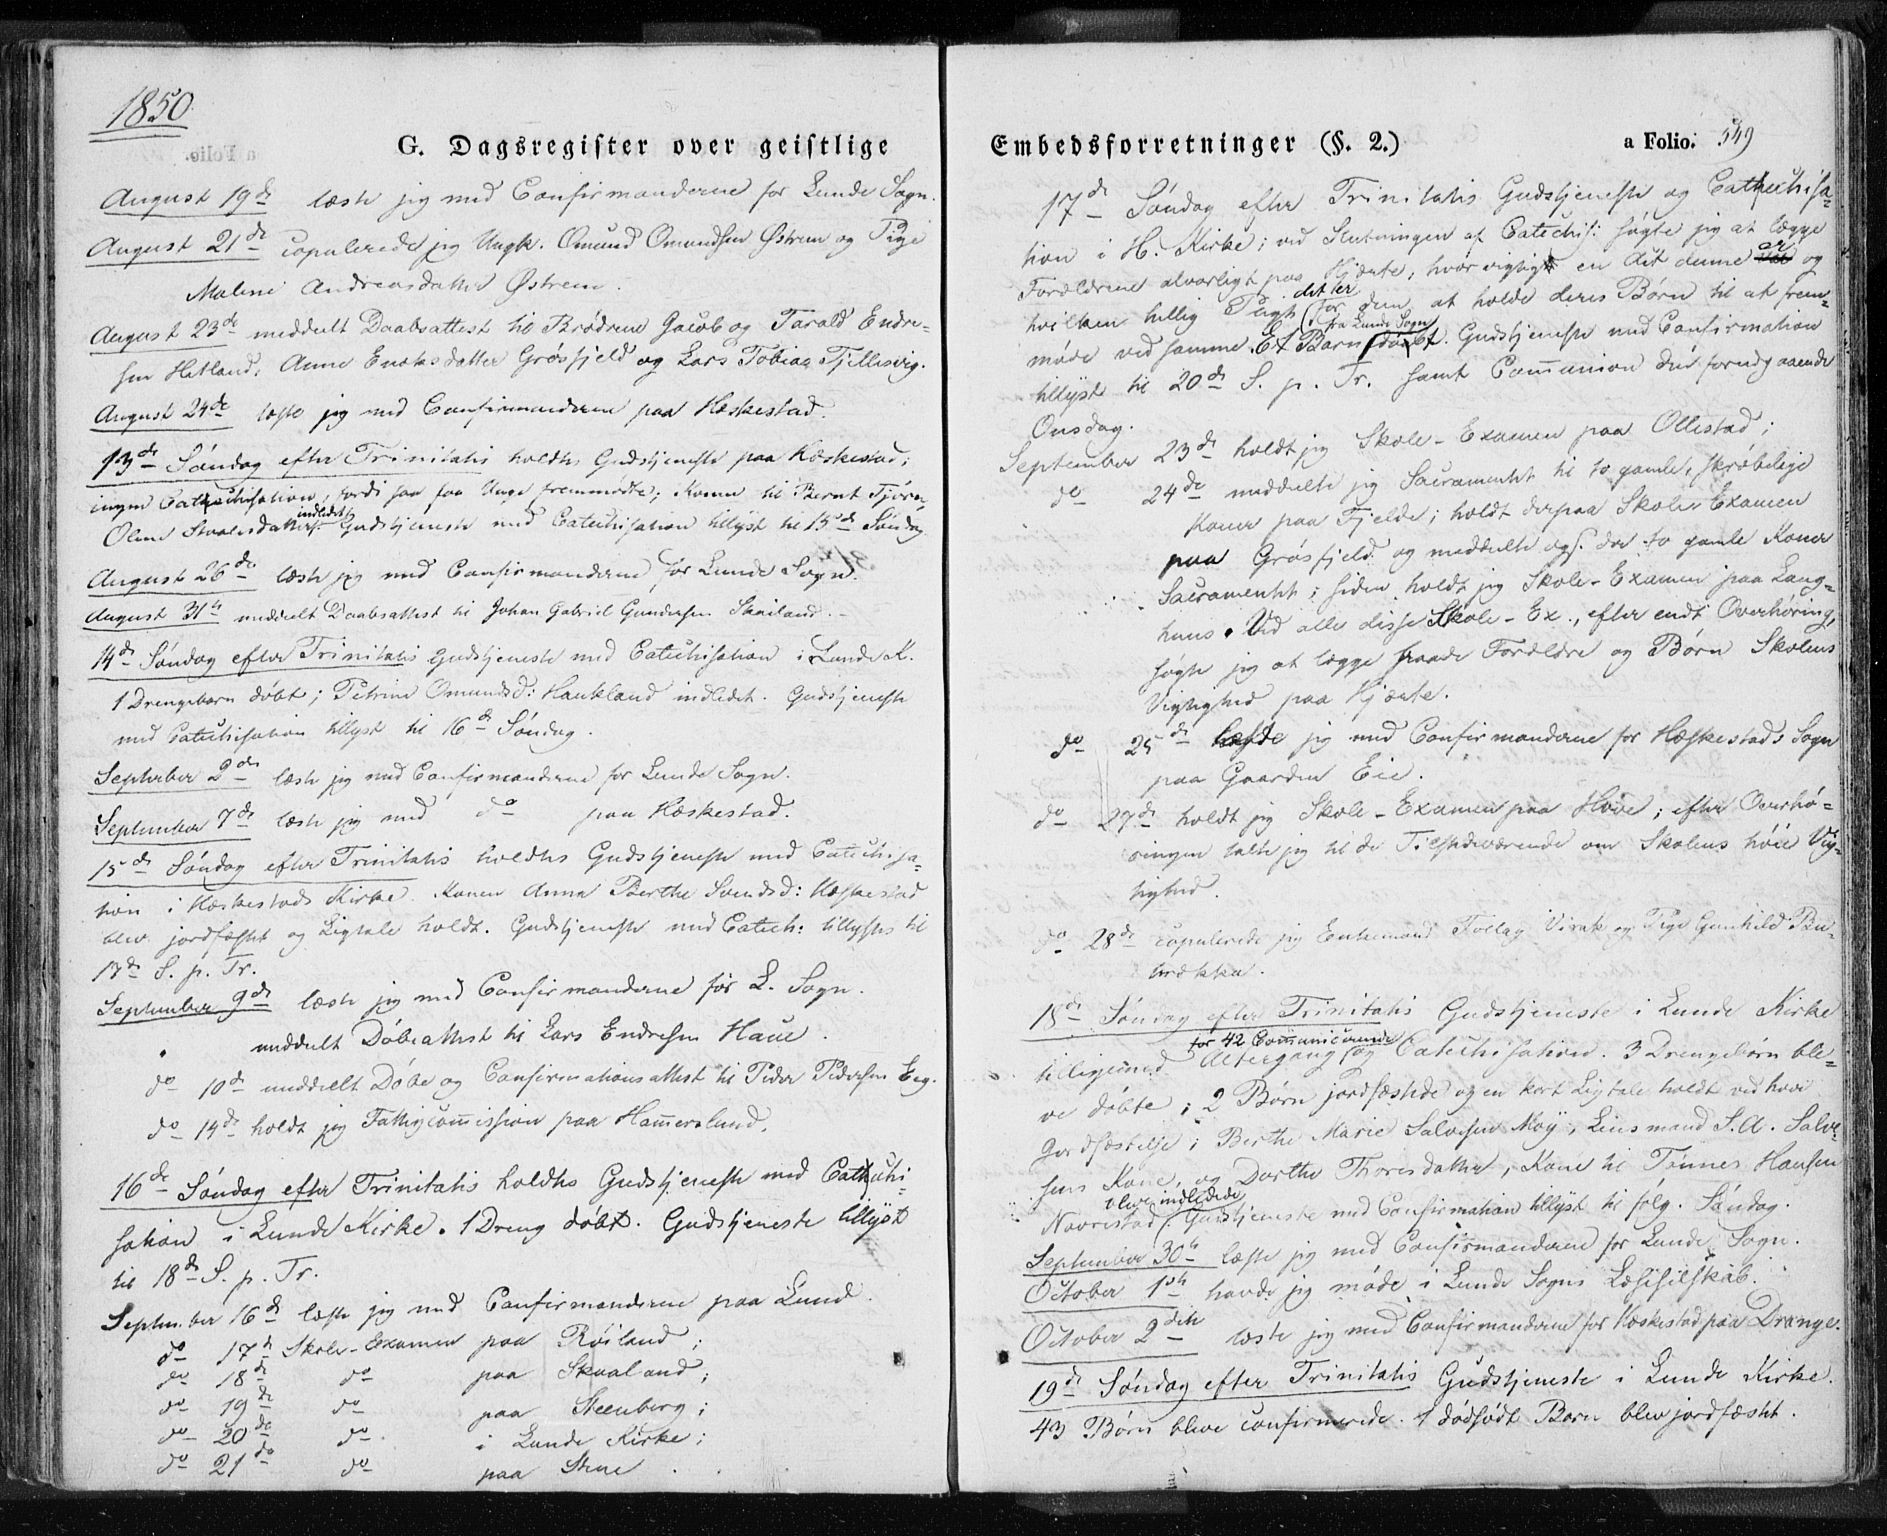 1850.
G. Dagsregister over geistlige
August 19de læste jeg med Confirmanderne for Lunde Sogn.
August 21de copulerede jeg Ungk. Omund Omundsen Østrem og Pige
Malene Andreasdatter Østrem.
August 23de meddeelt Daabsattest til Brødrene Jacob og Tarald Endre-
sen Hetland, Anne Enoksdatter Grøsfjeld og Lars Tobias Tjellesvig.
August 24de læste jeg med Confirmanderne paa Heskestad.
13de Søndag efter Trinitatis holdtes Gudstjeneste paa Heskestad;
ingen Catechisation, fordi saa faa Unge fremmødte; Konen til Bernt
Olene indledet. Gudstjeneste med Catechisation tillyst til 15de Søndag
August 26de læste jeg med Confirmanderne for Lunde Sogn.
August 31te meddeelt Daabsattest til Johan Gabriel Gundersen Skailand.
14de Søndag efter Trinitatis Gudstjeneste med Catechisation i Lunde K.
1 Drengebarn døbt; Petrine Omundsd: Haukland indledet. Gudstjeneste
med Catechisation tillyst til 16de Søndag.
September 2den læste jeg med Confirmanderne for Lunde Sogn.
September 7de læste jeg med do paa Heskestad.
15de Søndag efter Trinitatis holdtes Gudstjeneste med Catechisa-
tion i Heskestads Kirke. Konen Anna Berthe Svendsd: Heskestad
blev jordfæstet og Ligtale holdt. Gudstjeneste med Catech: tillystes til
17de S. p. Tr.
September 9de læste jeg med Confirmanderne for L. Sogn.
meddeelt Døbeattest til Lars Endresen Haue.
do 10de meddeelt Døbe og Confirmationsattest til Peder Pedersen Eeg.
do 14de holdt jeg Fattigcommission paa Hamersland.
16de Søndag efter Trinitatis holdtes Gudstjeneste med Catechi-
sation i Lunde Kirke. 1 Dreng døbt. Gudstjeneste tillyst
til 18de S. p. Tr.
September 16de læste jeg med Confirmanderne paa Lund.
do 17de Skole-Examen paa Røiland;
do 18de do paa Skaaland;
do 19de do paa Steenberg;
do 20de do i Lunde Kirke;
do 21de do paa Stene.
Embedsforretninger (§. 2.) a Folio. 549
17de Søndag efter Trinitatis Gudstjeneste og Catechisa-
tion i H. Kirke; ved Slutningen af Catechis: søgte jeg at lægge
Forældrene alvorligt paa Hjerte, hvor vigtig en Act denne er og
hvilken hellig Pligt det er for dem, at holde deres Børn til at frem-
møde ved samme. Et Barn fra Lunde Sogn døbt. Gudstjeneste med Confirmation
tillyst til 20de S. p. Tr. samt Communion den foregaaende
Onsdag.
September 23de holdt jeg Skole-Examen paa Ollestad;
do 24de meddeelte jeg Sacramentet til to gamle, skrøbelige
Koner paa Fjelde; holdt derpaa Skole-Examen
paa Grøsfjeld og meddeelte ogs. der to gamle Koner
Sacramentet; siden holdt jeg Skole-Examen paa Lang-
huus. Ved alle disse Skole-Ex., efter endt Overhøring,
søgte jeg at lægge baade Forældre og Børn Skolens
Vigtighed paa Hjerte.
do 25de læste jeg med Confirmanderne for Heskestads Sogn
paa Gaarden Eie.
do 27de holdt jeg Skole-Examen paa Hove; efter Overhø-
ringen talte jeg til de Tilstedeværende om Skolens høie Vig-
tighed.
do 28de copulerede jeg Enkemand Tollag Virak og Pige Gunhild Bu-
brækka.
18de Søndag efter Trinitatis Gudstjeneste i Lunde Kirke
tilligemed Altergang for 42 Communicerende og Catechisation. 3 Drengebørn ble-
ve døbte; 2 Børn jordfæstede og en kort Ligtale holdt ved hver
Jordfæstelse; Berthe Marie Salvesen Moy, Lensmand S. A. Salve-
sens Kone, og Dorthe Thoresdatter, Kone til Tønnes Hansen
Navrestad bleve indledede. Gudstjeneste med Confirmation tillyst til følg. Søndag.
September 30te læste jeg med Confirmanderne for Lunde Sogn.
October 1ste havde jeg møde i Lunde Sogns Læseselskab.
October 2den læste jeg med Confirmanderne for Heskestad paa Drange.
19de Søndag efter Trinitatis Gudstjeneste i Lunde Kirke.
43 Børn bleve confirmerede. 1 dødfødt Barn blev jordfæstet.